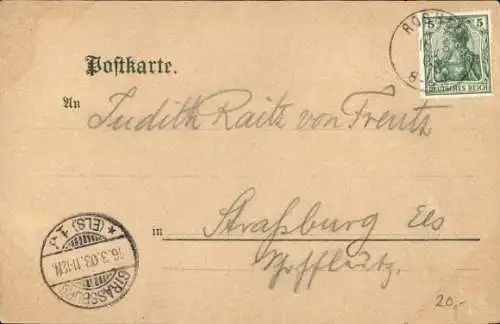 5 5
DEUTSCHES REICH
Postkarte.
An
Judith Raitz von Frentz
in Straßburg Els
STRASSBURG
* (ELS) 1
16.3.03.11-12N.
20,-